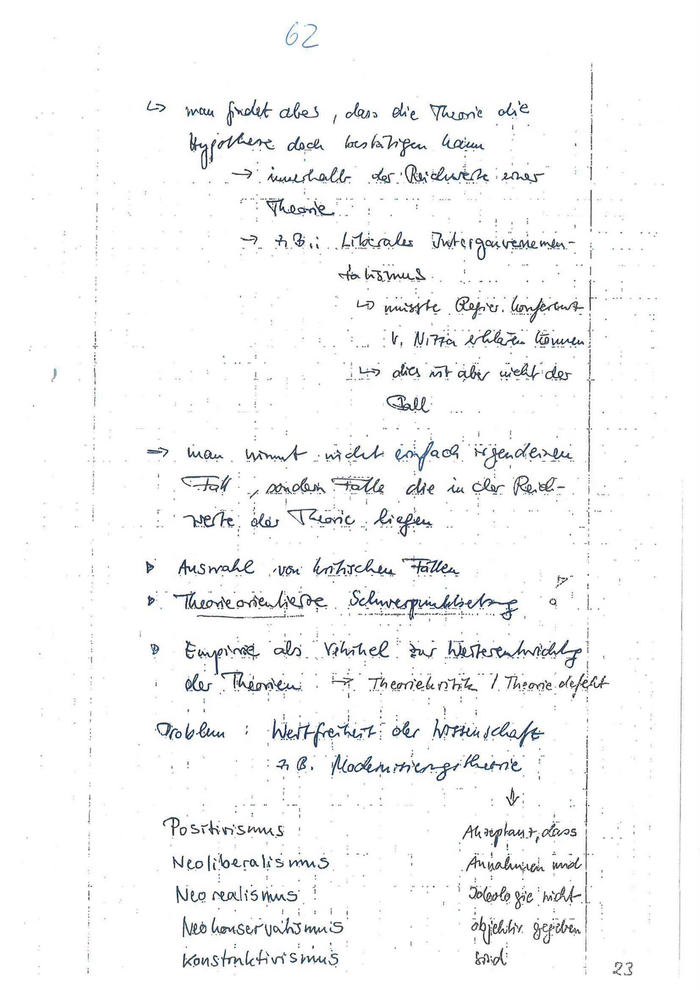 62
↳ man findet aber, dass die Theorie die
Hypothese doch bestätigen kann
→ innerhalb der Reichweite einer
Theorie
→ z.B.: Liberales Intergouvernemen-
talismus
↳ müsste Regier. konferenz
v. Nizza erklären können
↳ dies ist aber nicht der
Fall
⇒ man nimmt nicht einfach irgendeinen
Fall, sondern Fälle die in der Reich-
weite der Theorie liegen
▷ Auswahl von kritischen Fällen
▷ Theorieorientierte Schwerpunktsetzg
▷ Empirie als Vehikel zur Weiterentwicklg
der Theorien → Theoriekritik / Theoriedefekt
Problem: Wertfreiheit der Wissenschaft
z.B. Modernisierungstheorie
↓
Positivismus Akzeptanz, dass
Neoliberalismus Annahmen und
Neorealismus Ideologie nicht
Neokonservatismus objektiv gegeben
Konstruktivismus sind
23